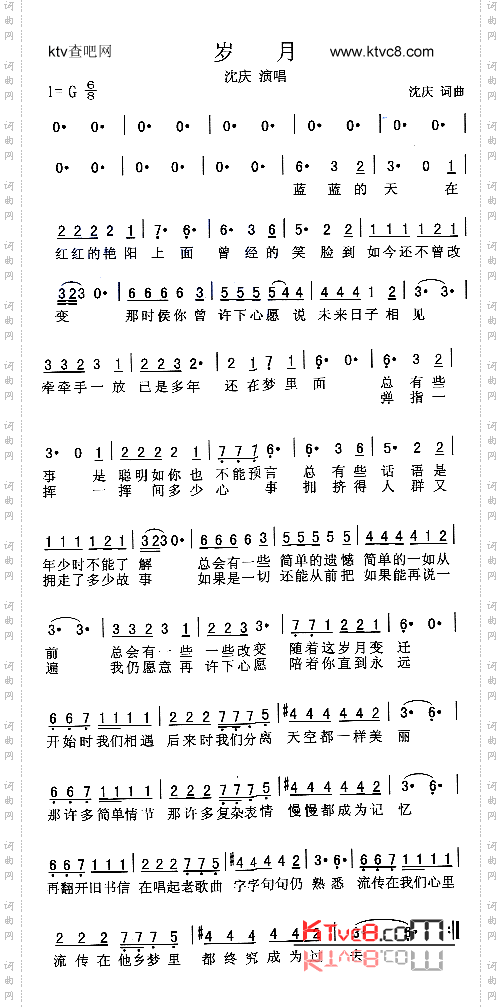 ktv查吧网 岁 月 www.ktvc8.com
沈庆 演唱
1= G 6/8 沈庆 词曲
0• | 0• | 0• | 0• | 0• | 0• | 0• | 0• |
0• 0• | 0• 0• | 0• 0• | 6• 3 2 | 3• 0 1 |
蓝 蓝 的 天 在
2 2 2 2 1 | 7• 6• | 6• 3 6 | 5• 2 2 | 1 1 1 1 2 1 |
红红的艳 阳 上 面 曾 经 的 笑 脸 到 如今还不曾改
3 2 3 0• | 6 6 6 6 3 | 5 5 5 5 4 4 | 4 4 4 1 2 | 3• 3• |
变 那时侯你 曾 许下心愿 说 未来日子 相 见
3 3 2 3 1 | 2 2 3 2• | 2 1 7 1 | 6• 0• |
牵牵手一 放 已是多年 还 在梦 里 面 总 有 些
弹 指 一
3• 0 1 | 2 2 2 2 1 | 7 7 7 6• | 6• 3 6 | 5• 2 2 |
事 是 聪明如你 也 不能预言 总 有 些 话 语 是
挥 一 挥 间多少 心 事 拥 挤 得 人 群 又
1 1 1 1 2 1 | 3 2 3 0• | 6 6 6 6 3 | 5 5 5 5 5 | 4 4 4 4 1 2 |
年少时不能了 解 总会有一些 简单的遗憾 简单的一如从
拥走了多少故 事 如果是一切 还能从前把 如果能再说一
3• 3• | 3 3 2 3 1 | 2 2 2 3• | 2 2 2 1 7 1 | 6• 0• |
前 总会有一 些 一些改变 随着这岁月变 迁
遍 我仍愿意 再 许下心愿 陪着你直到永 远
6 6 7 1 1 1 1 | 2 2 2 7 7 7 5 | #4 4 4 4 4 2 | 3• 6• |
开始时我们相遇 后来时我们分离 天空都一样美 丽
6 6 7 1 1 1 1 | 2 2 2 7 7 7 5 | #4 4 4 4 4 2 | 3• 6• |
那许多简单情节 那许多复杂表情 慢慢都成为记 忆
再翻开旧书信 在唱起老歌曲 字字句句仍 熟悉 流传在我们心里
2 2 2 7 7 7 5 | #4 4 4 4 4 2 | 3• 6• :||
流传在他乡梦里 都终究成为过 去
KTvc8.com
词曲网